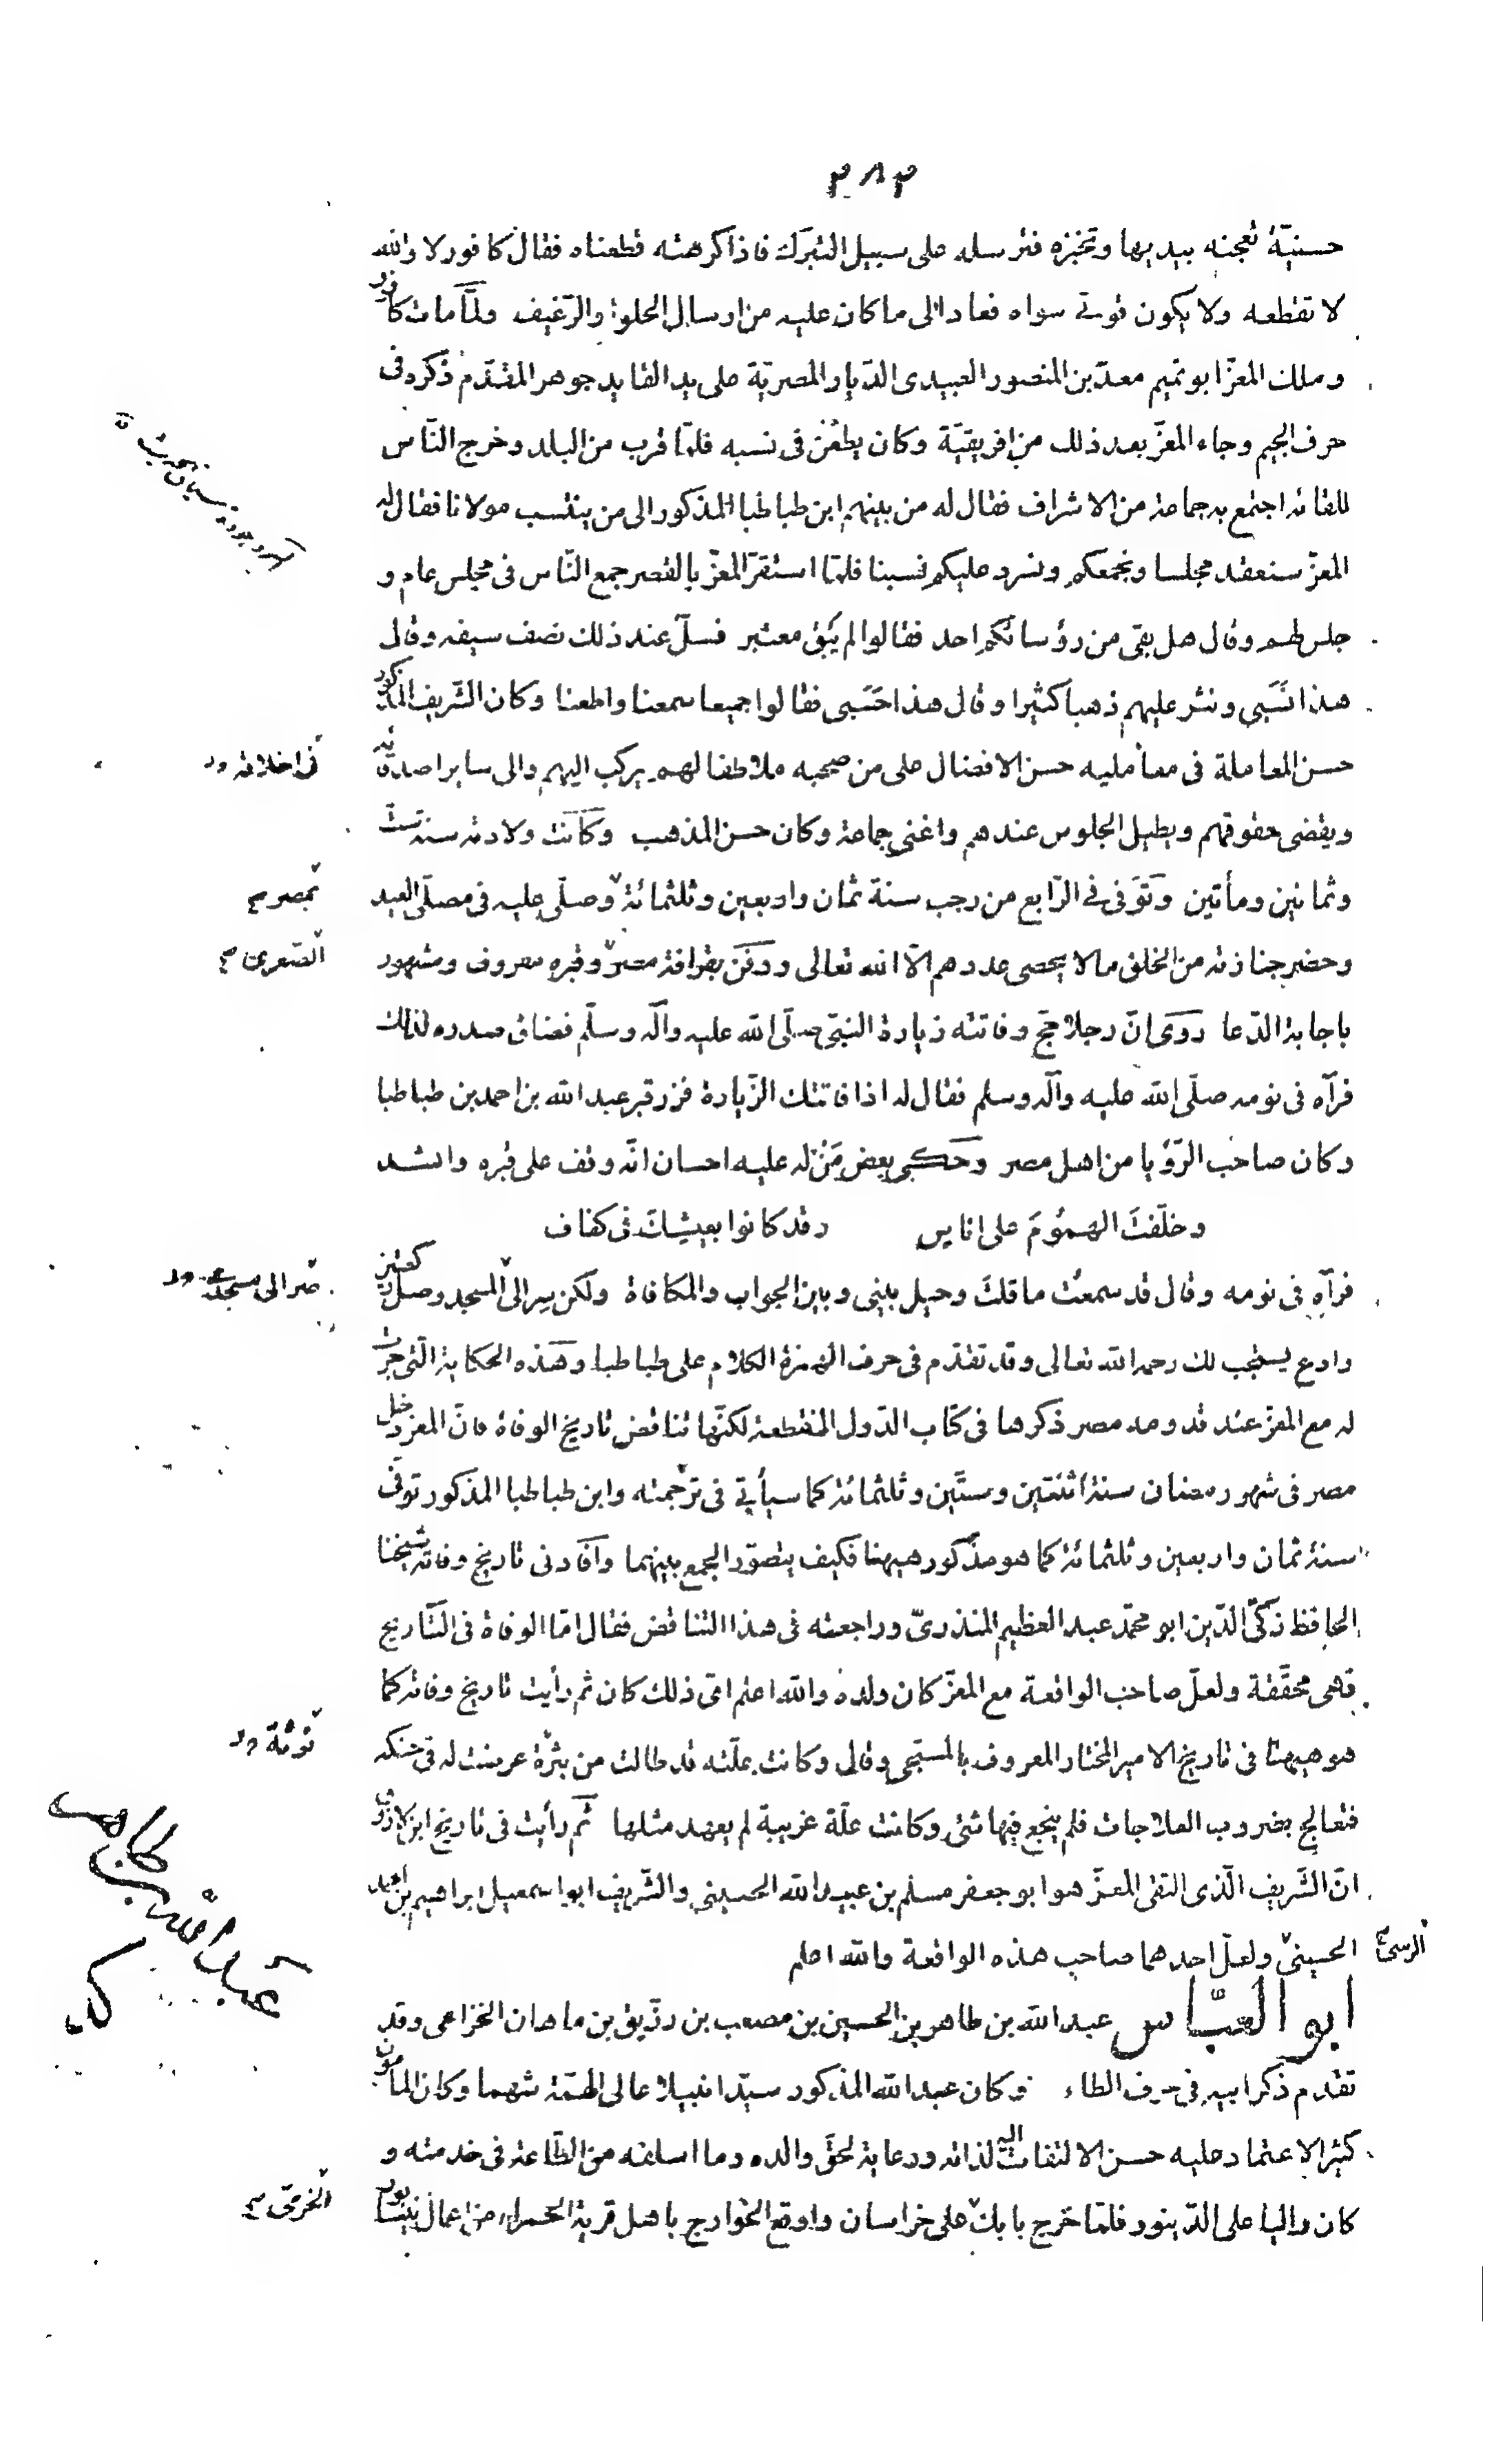 ٢٨٢
حسنيّة تعجنه بيديها وتخبزه فنرسله على سبيل التبرّك فاذا كرهته قطعناه فقال كافور لا والله
لا تقطعه ولا يكون قوتى سواه فعاد الى ما كان عليه من ارسال الحلوة والرّغيف ولمّا مات كافور
وملك المعزّ ابو تميم معدّ بن المنصور العبيدى الدّيار المصريّة على يد القايد جوهر المقدّم ذكره فى
حرف الجيم وجاء المعزّ بعد ذلك من افريقيّة وكان يطعن فى نسبه فلمّا قرب من البلد وخرج النّاس
للقائه اجتمع به جماعة من الاشراف فقال له من بينهم ابن طباطبا المذكور الى من ينتسب مولانا فقال له
المعزّ سنعقد مجلسا ونجمعكم ونسرد عليكم نسبنا فلمّا استقرّ المعزّ بالقصر جمع النّاس فى مجلس عام و
جلس لهم وقال هل بقى من رؤسائكم احد فقالوا لم يبق معتبر فسلّ عند ذلك نصف سيفه وقال
هذا نَسَبى ونثر عليهم ذهبا كثيرا وقال هذا حَسَبى فقالوا جميعا سمعنا واطعنا وكان الشّريف المذكور
حسن المعاملة فى معامليه حسن الافضال على من صحبه ملاطفا لهم يركب اليهم والى ساير اصدقائه
فى اخلاقه
ويقضى حقوقهم ويطيل الجلوس عندهم واغنى جماعة وكان حسن المذهب وكانت ولادته سنة ستّ
وثمانين ومأتين وتوفى فى الرّابع من رجب سنة ثمان واربعين وثلثمائة وصلّى عليه فى مصلّى العيد
بمصر
وحضر جنازته من الخلق ما لا يحصى عددهم الّا الله تعالى ودفن بقرافة مصر وقبره معروف ومشهور
الصّغرى
باجابة الدّعا روى انّ رجلا حجّ وفاتته زيارة النبىّ صلّى الله عليه وآله وسلّم فضاق صدره لذلك
فرآه فى نومه صلّى الله عليه وآله وسلم فقال له اذا فاتتك الزّيارة فزر قبر عبد الله بن احمد بن طباطبا
وكان صاحب الرّؤيا من اهل مصر وحكى بعض مَنْ له عليه احسان انّه وقف على قبره وانشد
وخلّفتَ الهمُومَ على اناس وقد كانوا بعيشك فى كفاف
فرآه فى نومه وقال قد سمعتُ ما قلتَ وحيل بينى وبين الجواب والمكافاة ولكن سِر الى المسجد وصل ركعتين
وادع يستجب لك رحمه الله تعالى وقد تقدّم فى حرف الهمزة الكلام على طباطبا وهذه الحكاية الّتى جرت
له مع المعزّ عند قدومه مصر ذكرها فى كتاب الدّول المنقطعة لكنّها تناقض تاريخ الوفاة فانّ المعزّ دخل
مصر فى شهر رمضان سنة اثنتين وستّين وثلثمائة كما سيأتى فى ترجمته وابن طباطبا المذكور توفّى
سنة ثمان واربعين وثلثمائة كما هو مذكور هيهنا فكيف يتصوّر الجمع بينهما وافادنى تاريخ وفاته شيخنا
الحافظ زكىّ الدّين ابو محمّد عبد العظيم المنذرىّ وراجعته فى هذا التناقض فقال امّا الوفاة فى التّاريخ
فهى محقّقة ولعلّ صاحب الواقعة مع المعزّ كان ولده والله اعلم اىّ ذلك كان ثم رأيت تاريخ وفاته كما
هو هيهنا فى تاريخ الامير المختار المعروف بالمسبّحى وقال وكانت علّته قد طالت من بثرة عرضت له فى حنكه
فتعالج بضروب العلاجات فلم ينجع فيها شئ وكانت علّة غريبة لم يعهد مثلها ثمّ رأيت فى تاريخ ابن لازرق
انّ الشّريف الّذى التقى المعزّ هو ابو جعفر مسلم بن عبيد الله الحسينى والشّريف ابو اسمعيل ابراهيم بن احمد
الرسىّ
الحسينىّ ولعلّ احدهما صاحب هذه الواقعة والله اعلم
عبد الله بن طاهر
ابو العبّاس عبد الله بن طاهر بن الحسين بن مصعب بن رزّيق بن ماهان الخزاعى وقد
تقدم ذكر ابيه فى حرف الطاء وكان عبد الله المذكور سيّدا نبيلا عالى الهمّة شهما وكان المأمون
كثير الاعتماد عليه حسن الالتفات اليه لذاته ورعاية لحقّ والده وما اسلفه من الطّاعة فى خدمته و
كان واليا على الدّينور فلمّا خرج بابك على خراسان واوقع الخوارج باهل قرية الحمراء من اعمال نيسابور
الخرمىّ